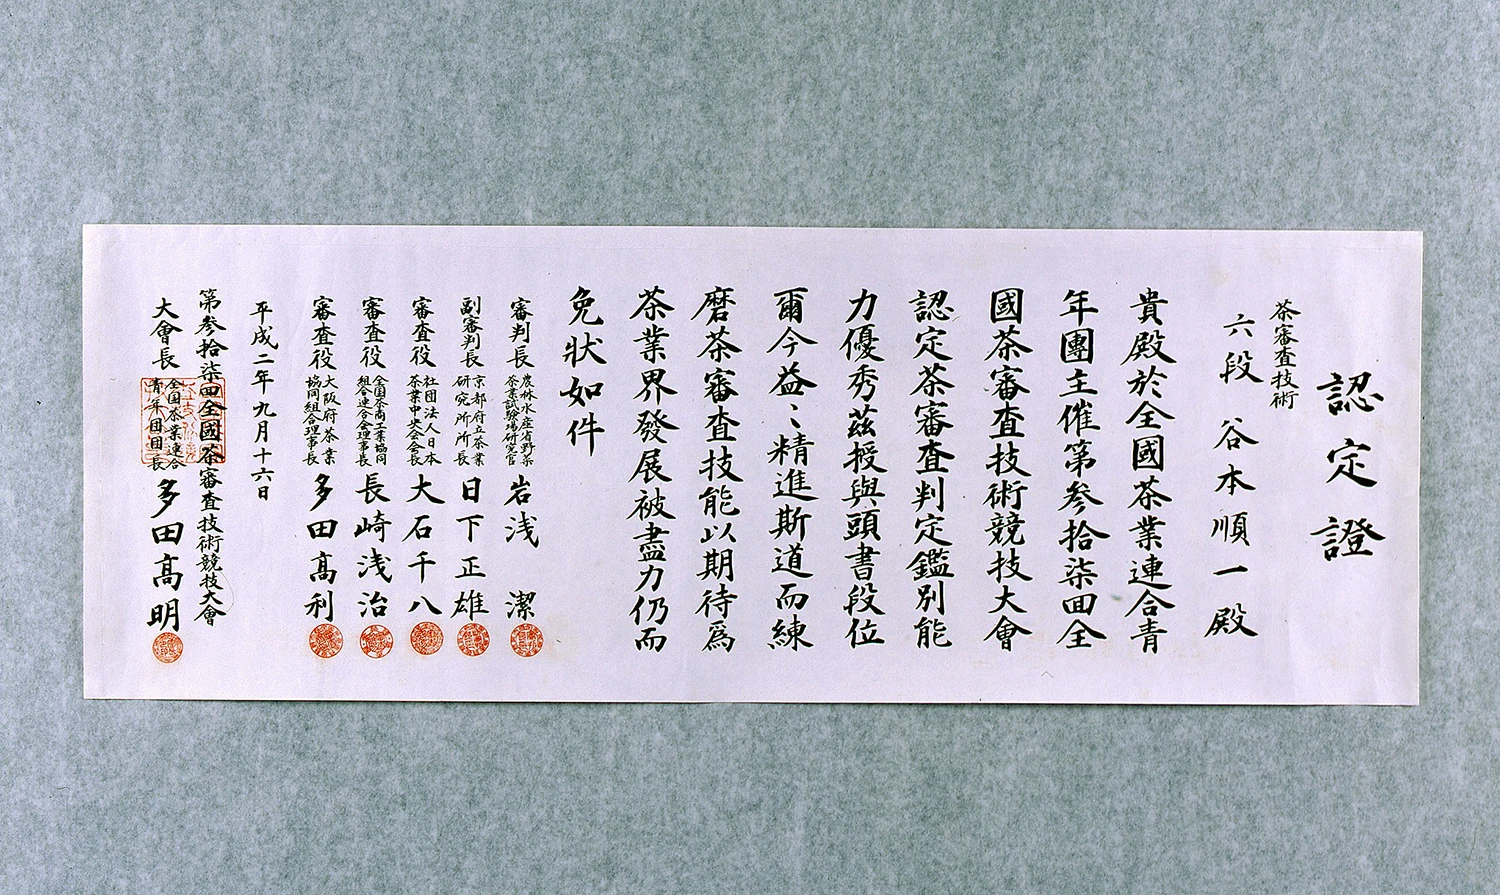 認定證
茶審査技術
六段 谷本順一殿
貴殿於全國茶業連合青
年團主催第参拾柒回全
國茶審査技術競技大會
認定茶審査判定鑑別能
力優秀茲授與頭書段位
爾今益〻精進斯道而練
磨茶審査技能以期待爲
茶業界發展被盡力仍而
免狀如件
審判長 農林水産省野菜茶業試験場研究官 岩浅 潔
副審判長 京都府立茶業研究所所長 日下正雄
審査役 社団法人日本茶業中央会会長 大石千八
審査役 全国茶商工業協同組合連合会理事長 長崎浅治
審査役 大阪府茶業協同組合理事長 多田高利
平成二年九月十六日
第参拾柒回全國茶審査技術競技大會
大會長 全国茶業連合青年団団長 多田高明